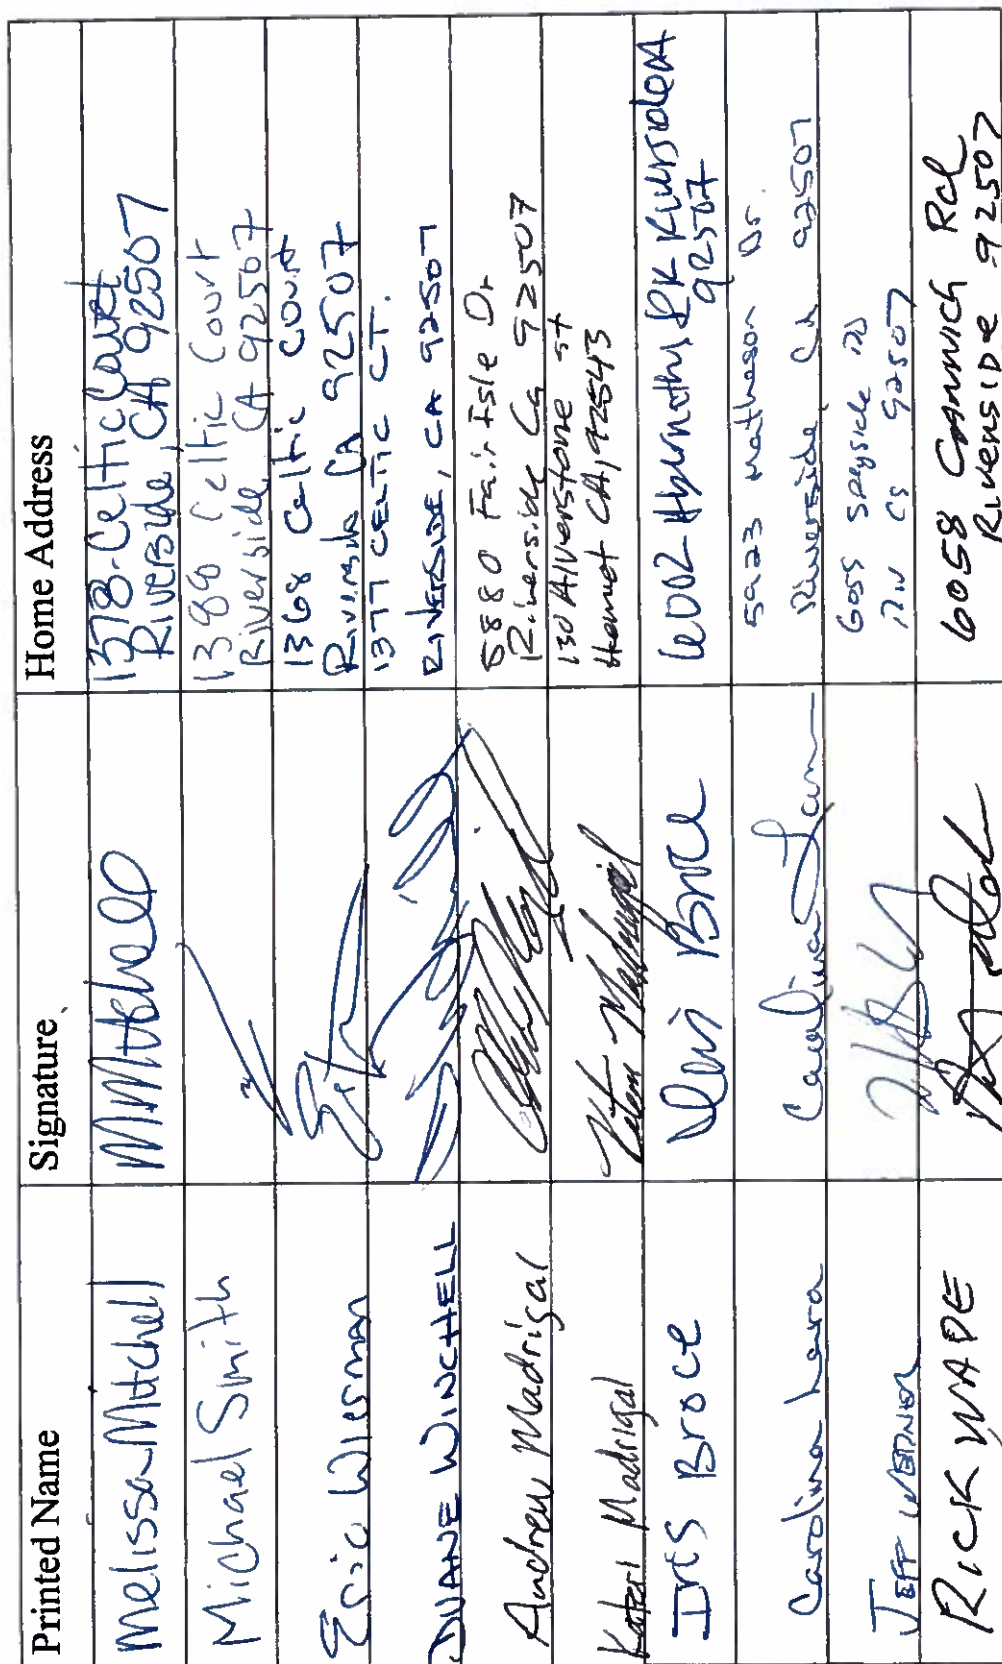 Printed Name Signature Home Address
Melissa Mitchell MMitchell 1378 Celtic Court
Riverside, CA 92507
Michael Smith 1380 Celtic Court
Riverside, CA 92507
Eric Wiesman 1368 Celtic Court
Riverside CA 92507
DUANE WINCHELL 1377 CELTIC CT.
RIVERSIDE, CA 92507
Andrew Madrigal 5880 Fair Isle Dr
Riverside Ca 92507
Kateri Madrigal Kateri Madrigal 130 Alverstone st
Hemet CA, 92543
Iris Broce Broce 6002 Abernathy
92507
Carolina Lara Carolina Lara 5923 Matheson Dr.
Riverside Ca 92507
JEFF 6055 Speyside RD
92507
RICK WADE 6058 Cannich Rd
RIVERSIDE 92507